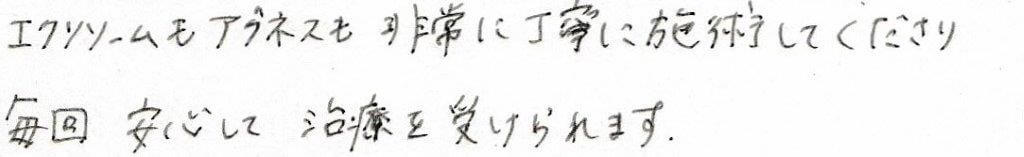 エクソソームもアグネスも非常に丁寧に施術してくださり
毎回 安心して 治療を受けられます.